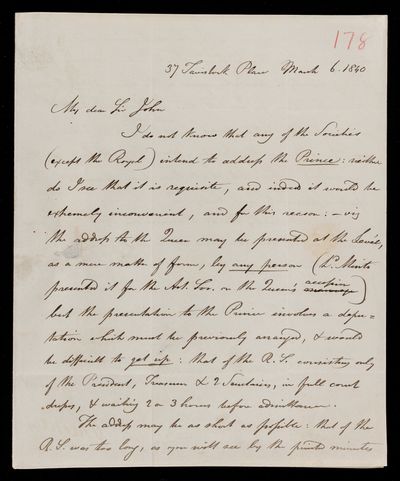 178
37 Tavistock Place March 6. 1840
My dear Sir John
I do not know that any of the Societies
(except the Royal) intend to address the Prince: neither
do I see that it is requisite, and indeed it would be
extremely inconvenient, and for this reason: – viz
the address to the Queen may be presented at the Levée,
as a mere matter of form, by any person (Ld. Minto
presented it for the Ast. Soc. on the Queen's accession)
but the presentation to the Prince involves a depu=
tation which must be previously arranged, & would
be difficult to get up: that of the R. S. consisting only
of the President, Treasurer & 2 Secretaries, in full court
dress, & waiting 2 or 3 hours before admittance.
The address may be as short as possible: that of the
R. S. was too long, as you will see by the printed minutes